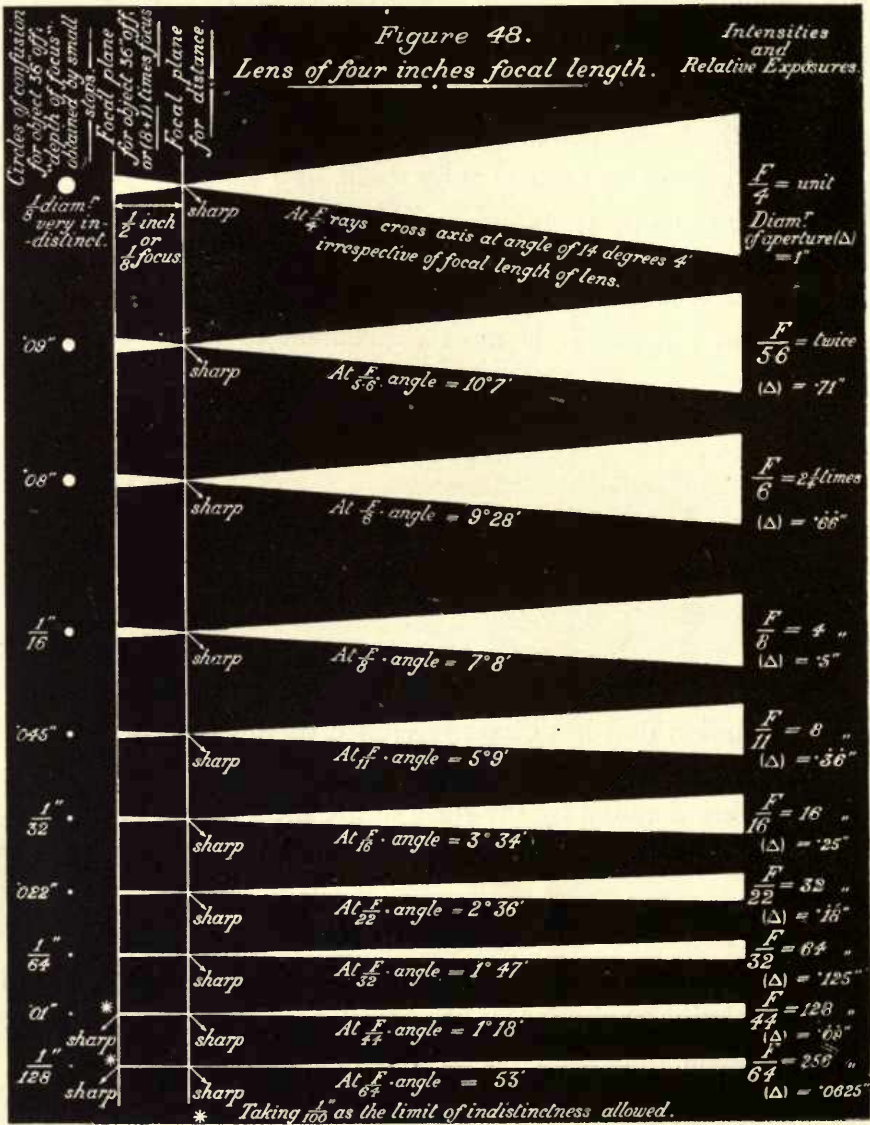 Figure 48.
Lens of four inches focal length.
Intensities
and
Relative Exposures.
Circles of confusion
for object 36" off.
"depth of focus"
obtained by small
stops.
Focal plane
for object 36" off.
or (8+1) times focus
Focal plane
for distance.
1/8 diamr
very in-
-distinct.
1/2 inch
or
1/8 focus.
sharp
At F/4 rays cross axis at angle of 14 degrees 4'
irrespective of focal length of lens.
F/4 = unit
Diamr
of aperture (Δ)
= 1"
·09"
sharp
At F/5·6 · angle = 10°7'
F/5·6 = twice
(Δ) = ·71"
·08"
sharp
At F/6 · angle = 9°28'
F/6 = 2¼ times
(Δ) = ·66"
1/16"
sharp
At F/8 · angle = 7°8'
F/8 = 4 "
(Δ) = ·5"
·045"
sharp
At F/11 · angle = 5°9'
F/11 = 8 "
(Δ) = ·36"
1/32"
sharp
At F/16 · angle = 3°34'
F/16 = 16 "
(Δ) = ·25"
·022"
sharp
At F/22 · angle = 2°36'
F/22 = 32 "
(Δ) = ·18"
1/64"
sharp
At F/32 · angle = 1°47'
F/32 = 64 "
(Δ) = ·125"
·01" *
sharp
sharp
At F/44 · angle = 1°18'
F/44 = 128 "
(Δ) =
1/128" *
sharp
sharp
At F/64 · angle = 53'
F/64 = 256 "
(Δ) = ·0625"
* Taking 1/100" as the limit of indistinctness allowed.